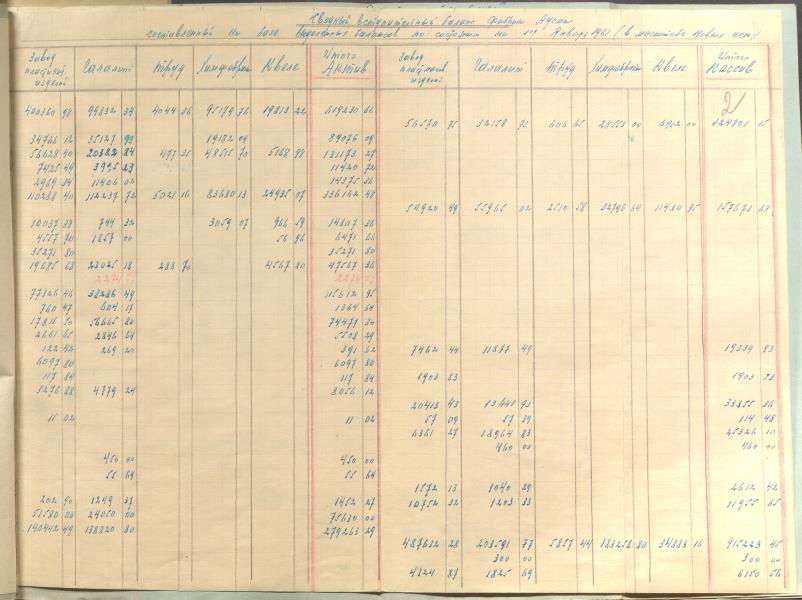 Сводный вступительный баланс фабрики
составленный на базе отдельных балансов по состоянию на 1го января 1961 (в масштабе новых цен)
Завод пластмас. изделий Галалит Труд Химфабрика Квеге Итого Актив Завод пластмасс. изделий Галалит Труд Химфабрика Квеге Итого Пассив
2
400360 98 99832 34 4044 36 95179 76 19813 22 619230 66
56570 75 32158 75 606 65 28553 00 6912 00 124801 15
34766 12 35127 93 19182 04 89076 09
56628 40 20382 84 477 35 48515 70 5168 98 131173 27
7425 49 3995 23 11420 72
2969 34 11406 02 14375 36
110288 40 112237 72 5021 16 83680 13 24935 07 336162 48
54920 49 55965 02 2510 58 32796 64 11480 95 157673 68
10037 38 744 32 3059 07 966 59 14807 36
4557 70 1857 00 56 96 6471 66
35271 80 35271 80
19685 68 23025 18 288 70 4567 80 47567 36
77326 46 38286 49 115612 95
760 47 604 17 1364 64
17811 50 56665 80 74477 30
2661 65 2846 64 5508 29
122 42 269 20 391 62 7462 44 11877 49 19339 93
6097 80 6097 80
117 84 117 84 1903 83 1903 83
3276 88 4779 24 8056 12
20413 43 13441 93 33855 36
11 02 11 02 57 09 57 39 114 48
6361 27 18964 83 25326 10
460 00 460 00
450 00 450 00
55 64 55 64
1572 13 1040 29 2612 42
202 90 1249 37 1452 27 10752 32 1203 33 11955 65
51580 00 24050 00 75630 00
140442 49 138820 80 279263 29
487632 28 203591 77 5857 44 183258 80 34883 16 915223 45
300 00 300 00
4324 87 1825 69 6150 56